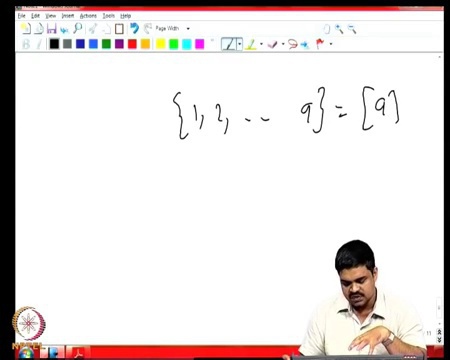 File Edit View Insert Actions Tools Help
Page Width
B I
{1, 2, .. 9} = [9]
11
NPTEL